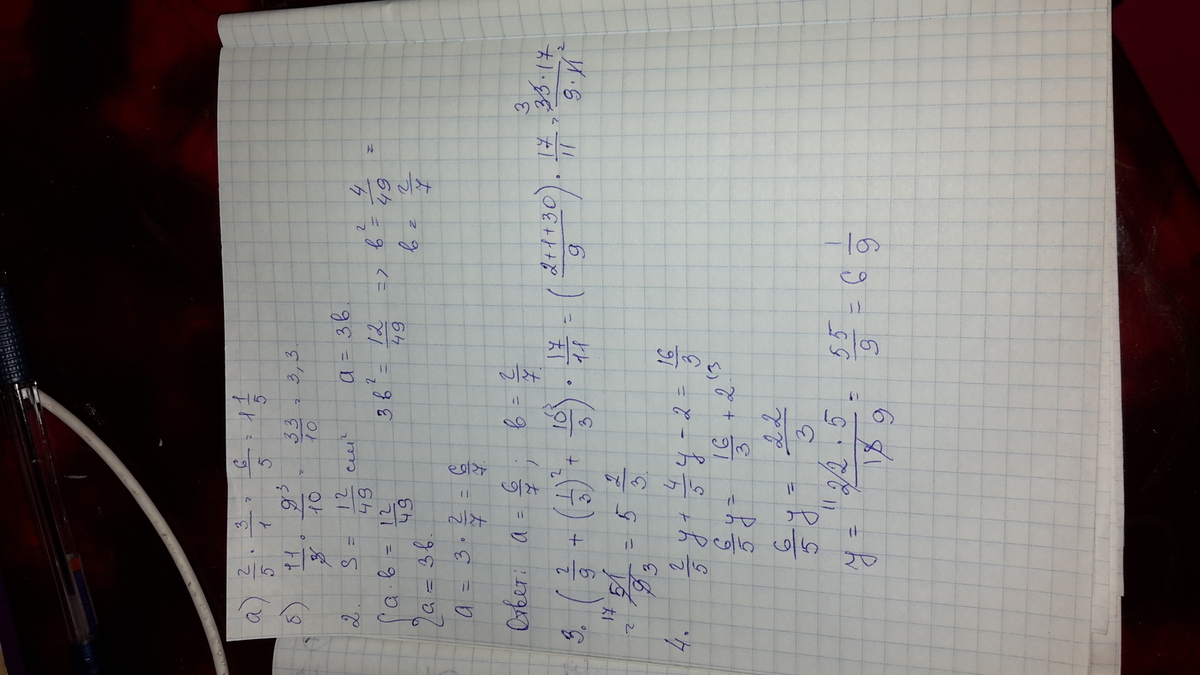 а) 2/5 · 3/1 = 6/5 = 1 1/5
б) 11/3 · 9³/10 = 33/10 = 3,3
2. S = 12/49 см² a = 3в.
{a·в = 12/49 3в² = 12/49 => в² = 4/49 =
{a = 3в. в = 2/7
a = 3 · 2/7 = 6/7
Ответ: a = 6/7; в = 2/7.
3. (2/9 + (1/3)² + 10/3) · 17/11 = ((2+1+30)/9) · 17/11 = ³33·17/9·11 ²
= ¹⁷51/9 3 = 5 2/3.
4. 2/5 y + 4/5 y - 2 = 16/3
6/5 y = 16/3 + 2
6/5 y = 22/3
y = ¹¹22·5/18 9 = 55/9 = 6 1/9